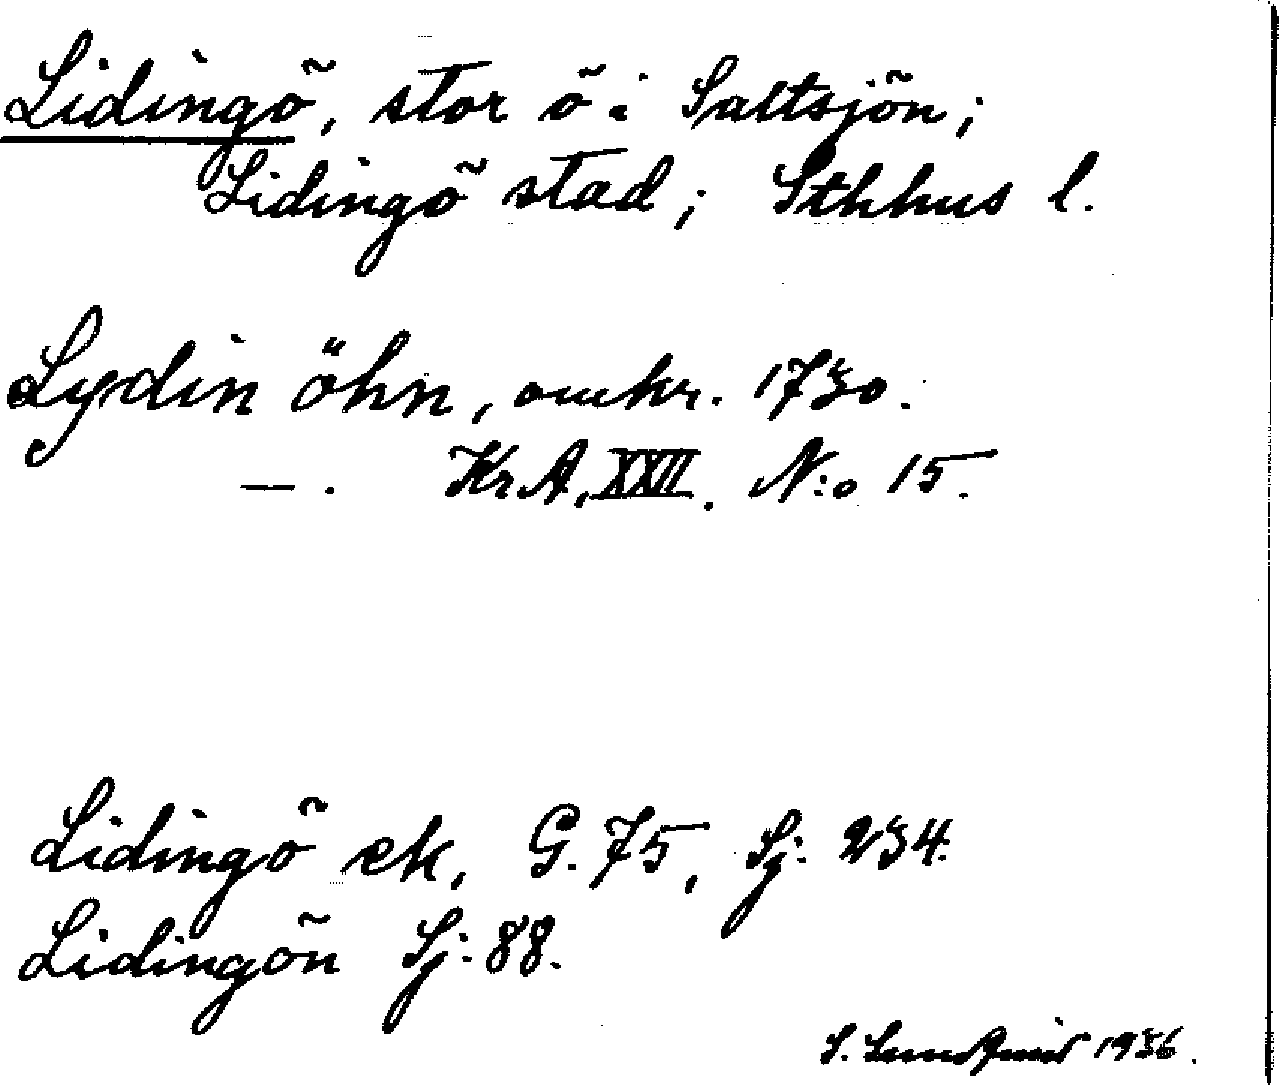 Lidingö, stor ö i Saltsjön;
Lidingö stad; Sthhus l.
Lydin öhn, omkr. 1730.
— . KrA, XXII. N:o 15.
Lidingö ek, G. 75, Sj. 234.
Lidingön Sj. 88.
S. Lundqvist 1936.